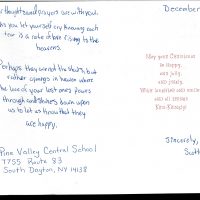 thoughts and prayers are with you.
you let yourself cry knowing each
tear is a note of love rising to the
heavens.
Perhaps they are not the stars, but
rather openings in heaven where
the love of your lost ones pours
through and shines down upon
us to let us know that they
are happy.
Pine Valley Central School
7755 Route 83
South Dayton, NY 14138
December
May your Christmas
be happy,
and jolly,
and joyful,
With
and all season
Sincerely,